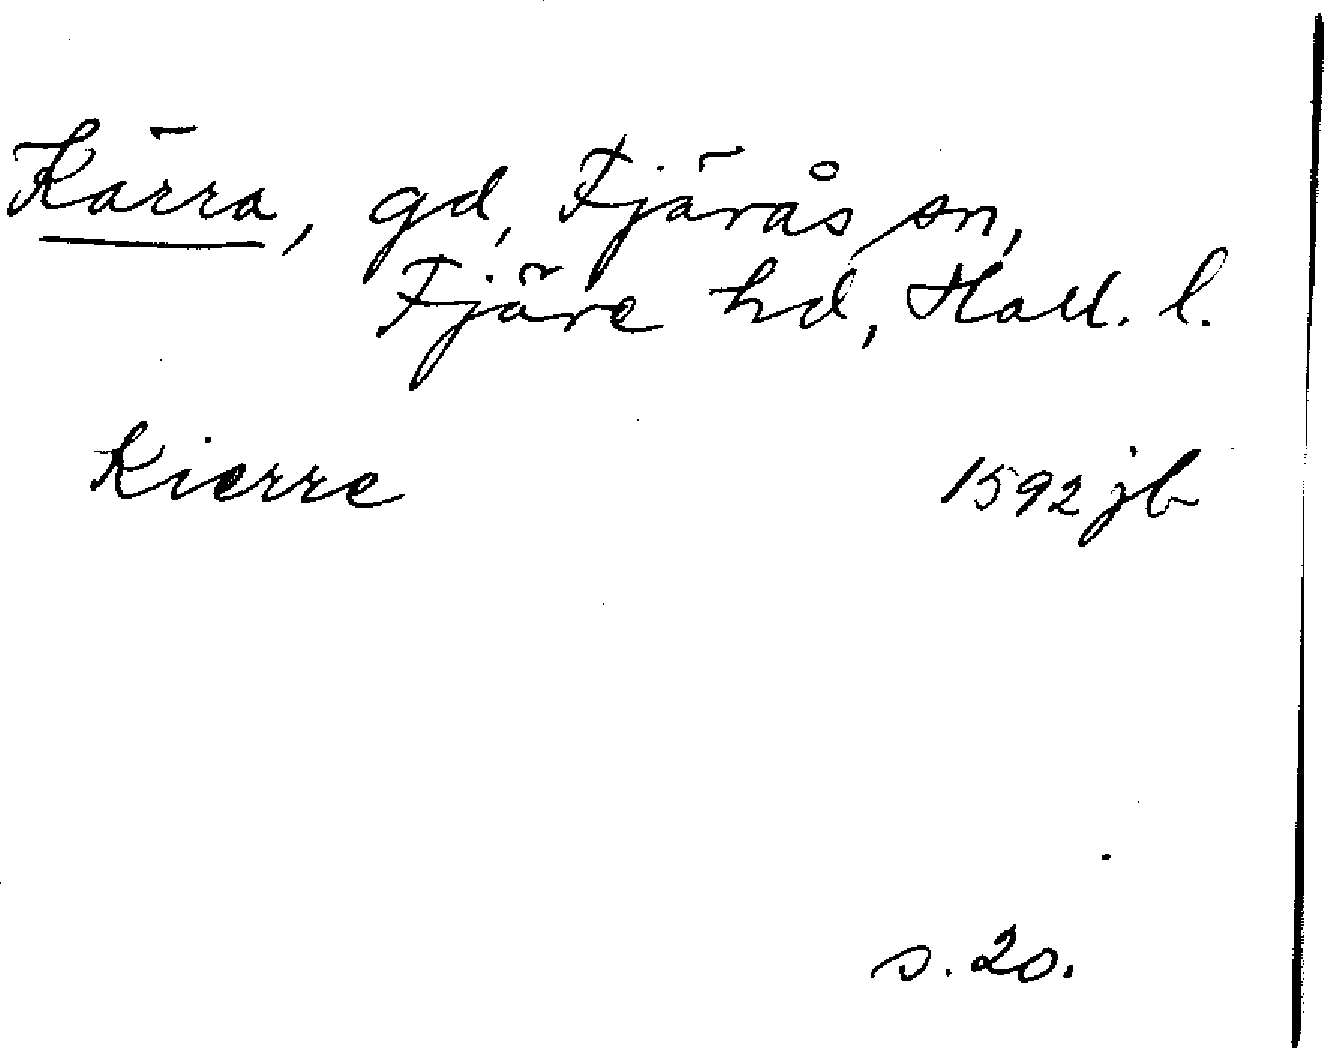 Kärra, gd, Fjärås sn,
Fjäre hd, Hall. l.
Kierre 1592 jb
s. 20.